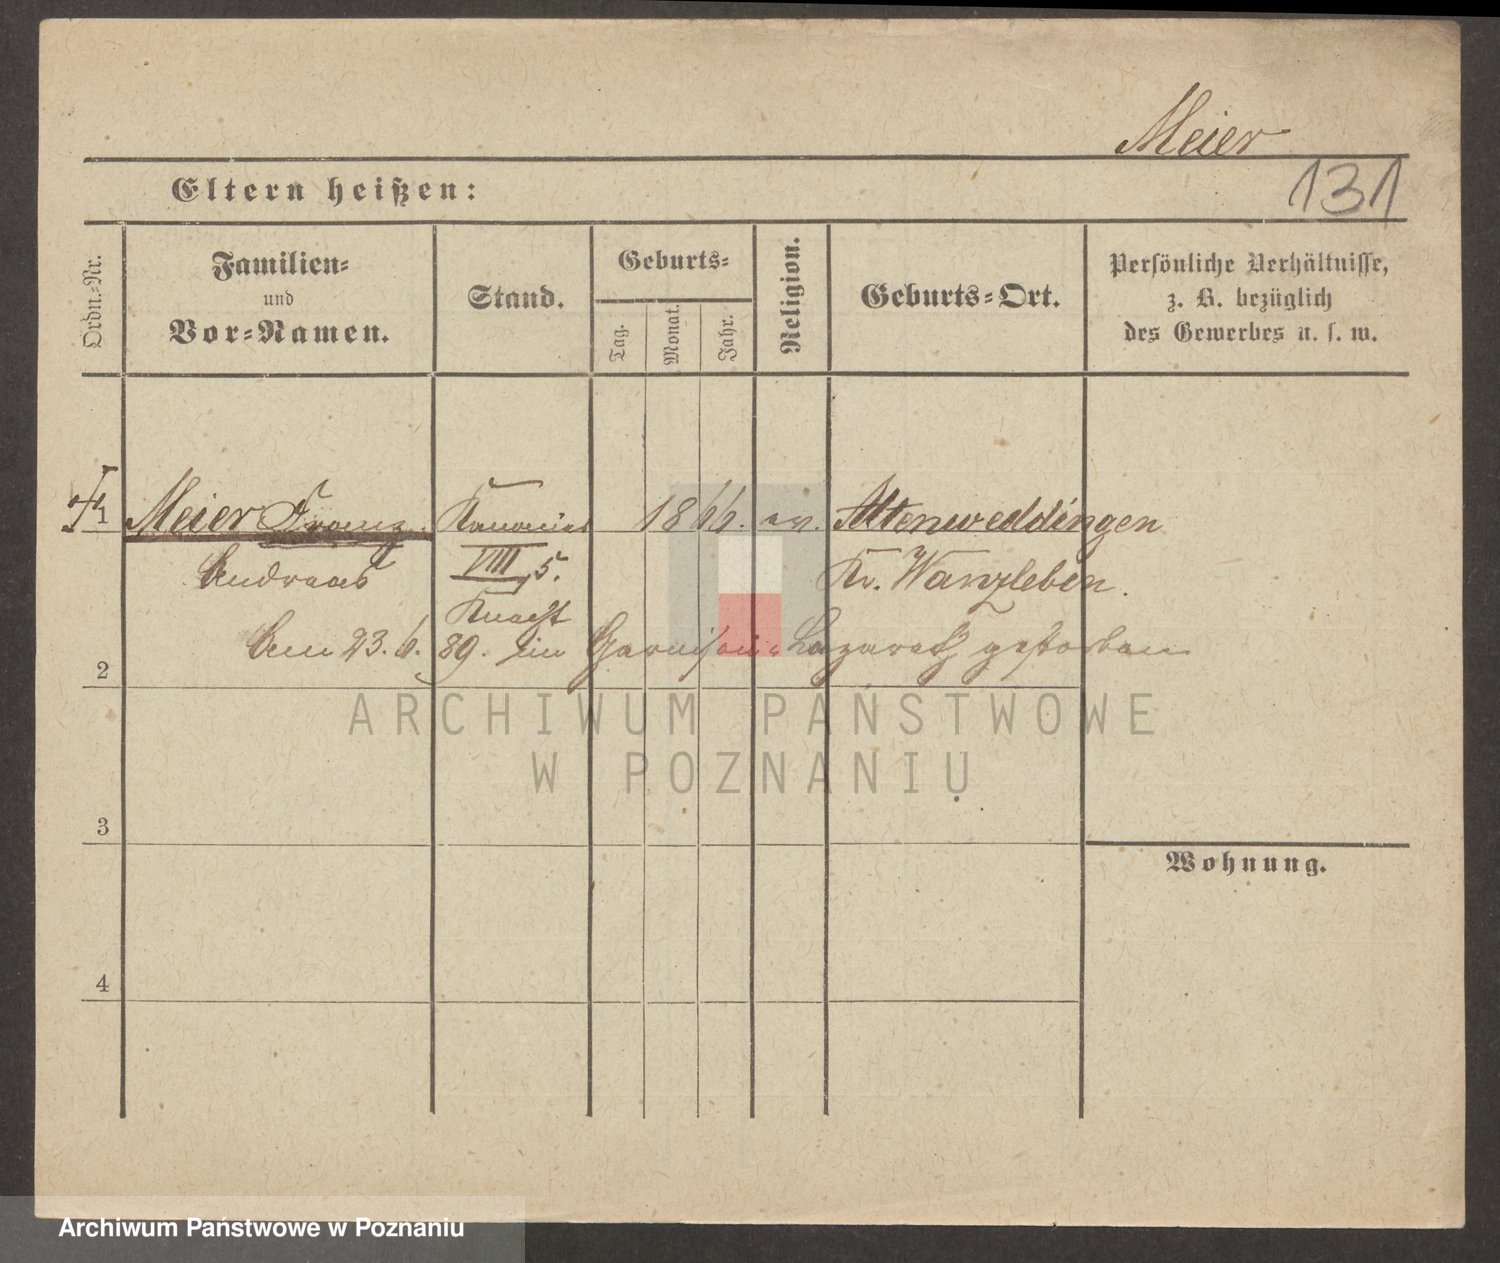 Meier
131
Eltern heißen:
Ordn.-Nr.
Familien-
und
Vor-Namen.
Stand.
Geburts-
Tag.
Monat.
Jahr.
Religion.
Geburts-Ort.
Persönliche Verhältnisse,
z. B. bezüglich
des Gewerbes u. s. w.
1 Meier Franz Kanonier 1866. ev. Altenweddingen
Andreas VIII/5. Kr. Wanzleben.
Knecht
Am 23. 6. 89. im Garnison-Lazareth gestorben
2
ARCHIWUM PAŃSTWOWE
W POZNANIU
3
Wohnung.
4
Archiwum Państwowe w Poznaniu